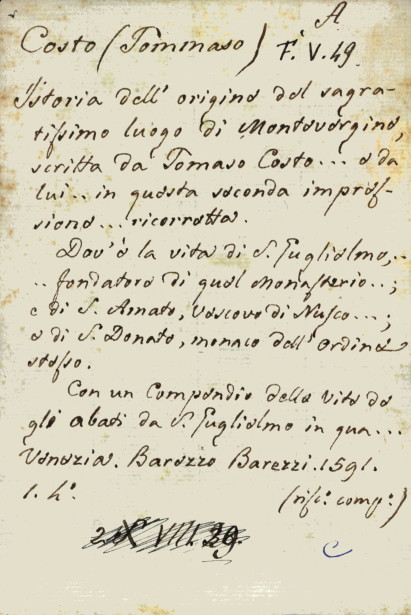 A
Costo (Tommaso) F. V. 49.
Istoria dell' origine del sagra-
tissimo luogo di Montevergine,
scritta da Tomaso Costo... e da
lui.. in questa seconda impres-
sione... ricorretta.
Dov'è la vita di S. Guglielmo,..
.. fondatore di quel Monasterio..;
e di S. Amato, vescovo di Nusco...;
e di S. Donato, monaco dell' Ordine
stesso.
Con un Compendio delle Vite de
gli abati da S. Guglielmo in qua...
Venezia. Barezzo Barezzi. 1591.
(risc: comp:)
VIII. 29.
C